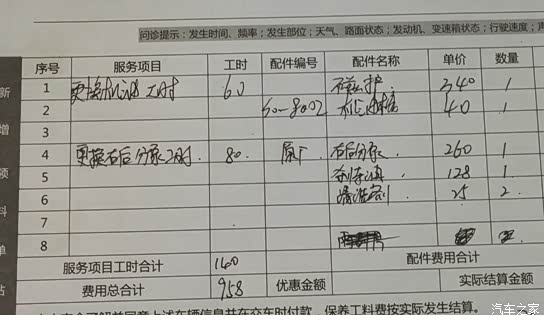 问诊提示：发生时间、频率；发生部位；天气、路面状态；发动机、变速箱状态；行驶速度；
新
增
项
料
单
站
序号 服务项目 工时 配件编号 配件名称 单价 数量
1 更换机油工时 60 340 1
2 50-8002 机滤 40 1
3
4 更换右后分泵工时 80 原厂 右后分泵 260 1
5 刹车油 128 1
6 清洗剂 25 2
7
8
服务项目工时合计 140 配件费用合计
费用总合计 958 优惠金额 实际结算金额
保养工料费按实际发生结算。
汽车之家